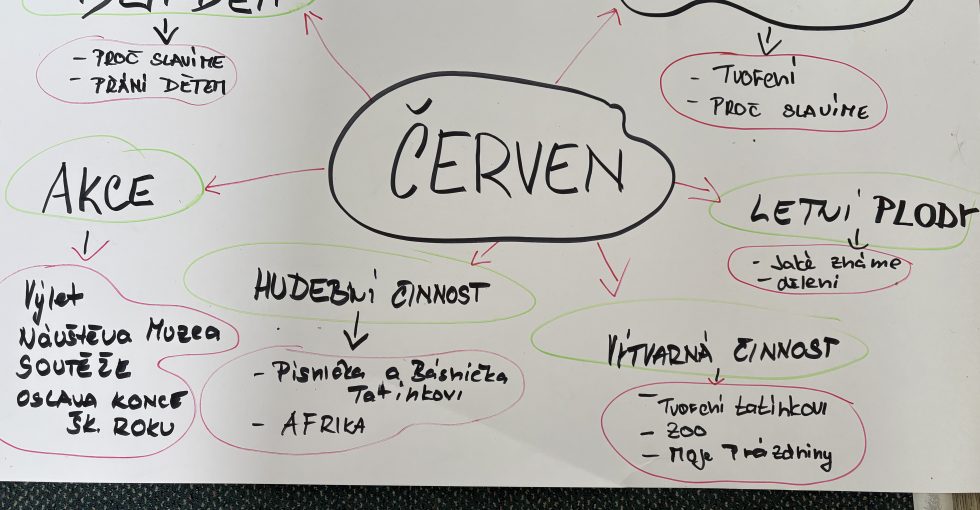 DEN DĚTÍ
- PROČ SLAVÍME
- PŘÁNÍ DĚTEM
- TVOŘENÍ
- PROČ SLAVÍME
ČERVEN
AKCE
Výlet
NÁVŠTĚVA MUZEA
SOUTĚŽE
OSLAVA KONCE
ŠK. ROKU
HUDEBNÍ ČINNOST
- Písnička a Básnička
Tatínkovi
- AFRIKA
LETNÍ PLODY
- Jaké známe
- dělení
VÝTVARNÁ ČINNOST
- Tvoření tatínkovi
- ZOO
- Moje Prázdniny